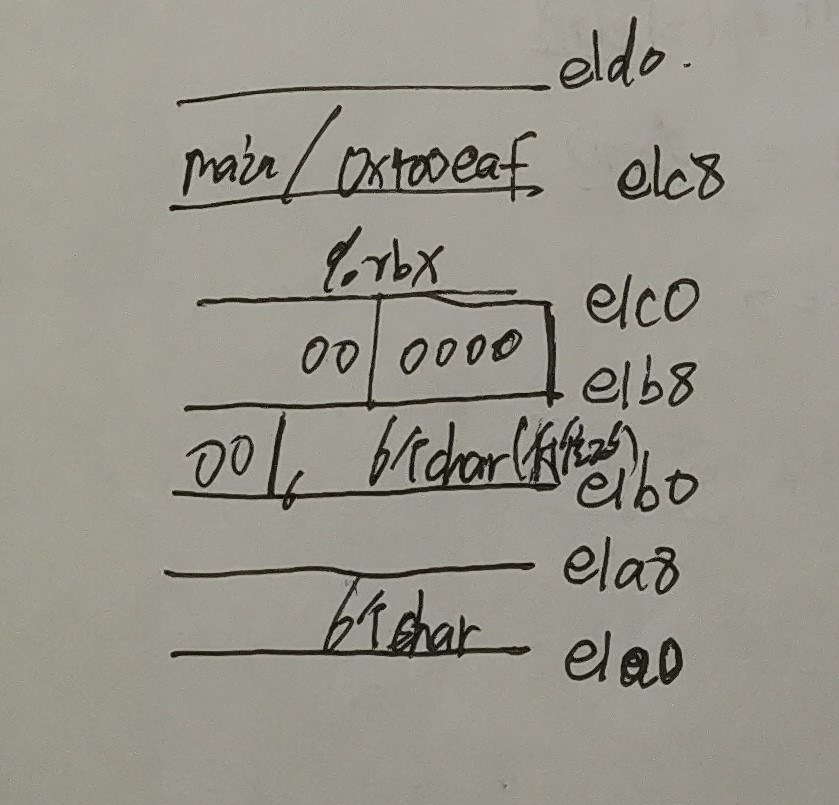 e1d0.
main/0x400eaf e1c8
%rbx
e1c0
00 0000
e1b8
00 6个char
e1b0
e1a8
6个char
e1a0